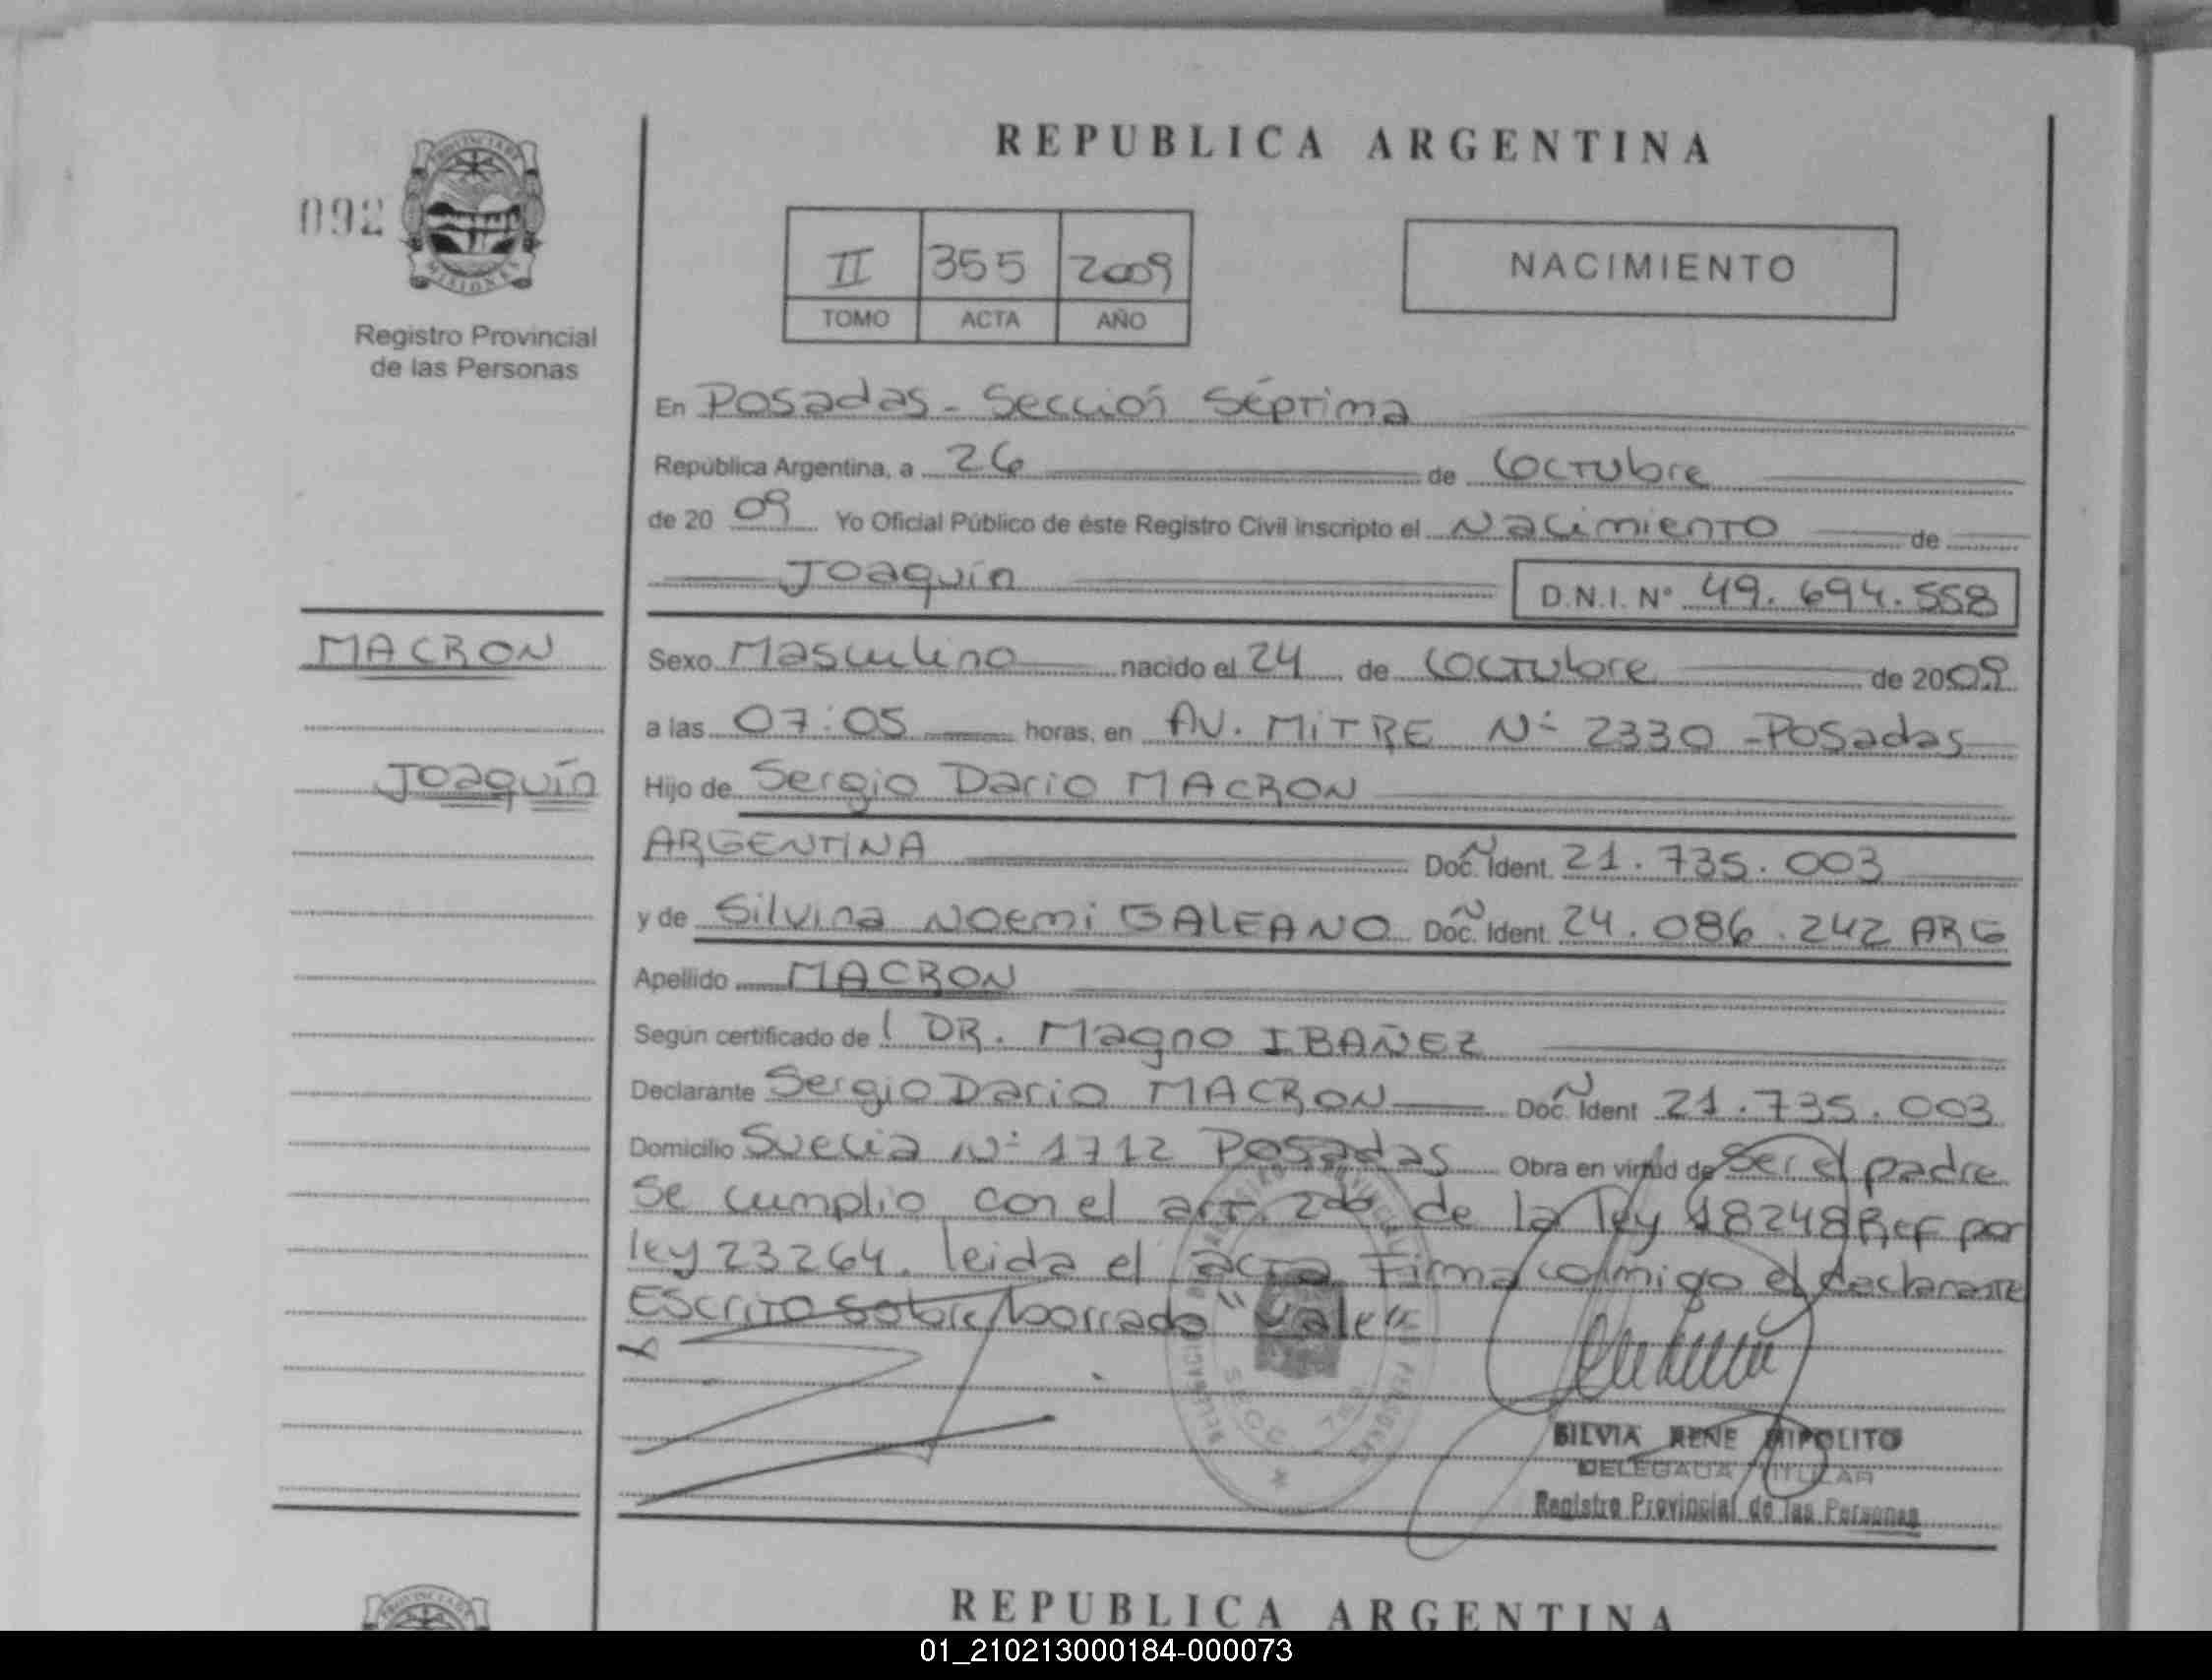 REPUBLICA ARGENTINA
092
PROVINCIA DE
MISIONES
Registro Provincial
de las Personas
II 355 2009
TOMO ACTA AÑO
NACIMIENTO
En Posadas - Sección Séptima
República Argentina, a 26 de Octubre
de 2009 Yo Oficial Público de éste Registro Civil inscripto el Nacimiento de
Joaquín D.N.I. N° 49.694.558
MACRON
Joaquín
Sexo Masculino nacido el 24 de Octubre de 2009
a las 07:05 horas, en AV. MITRE Nº 2330 - Posadas
Hijo de Sergio Dario MACRON
ARGENTINA Doc. Ident. 21.735.003
y de Silvina Noemi GALEANO Doc. Ident. 24.086.242 ARG
Apellido MACRON
Según certificado de l DR. Magno IBAÑEZ
Declarante Sergio Dario MACRON Doc. Ident 21.735.003
Domicilio Suecia Nº 1712 Posadas Obra en virtud de Ser el padre
Se cumplio con el art. 2do de la ley 18248 Ref por
ley 23264. leida el acta Firma conmigo el declarante
Escrito sobre borrado "Vale"
SILVIA RENE HIPOLITO
DELEGADA TITULAR
Registro Provincial de las Personas
REPUBLICA ARGENTINA
01_210213000184-000073